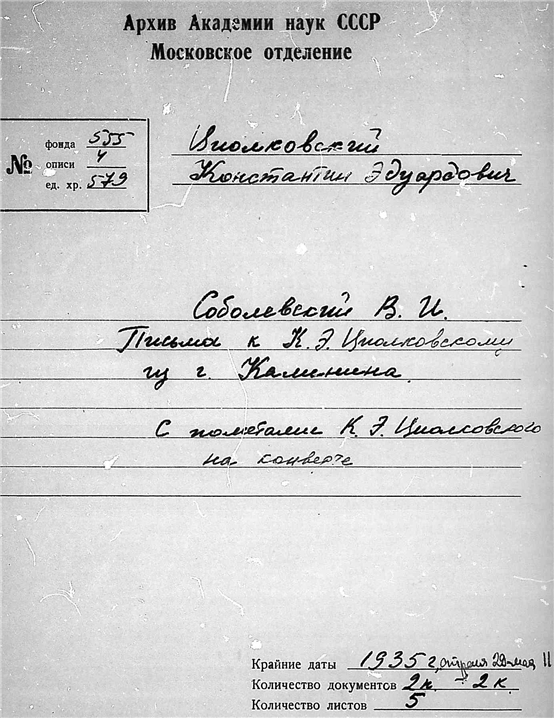 Архив Академии наук СССР
Московское отделение
№
фонда 555
описи 4
ед. хр. 579
Циолковский
Константин Эдуардович
Соболевский В. И.
Письма к К. Э. Циолковскому
из г. Калинина.
С пометами К. Э. Циолковского
на конверте
Крайние даты 1935 г, апреля 29-мая 11
Количество документов 2к. - 2к.
Количество листов 5